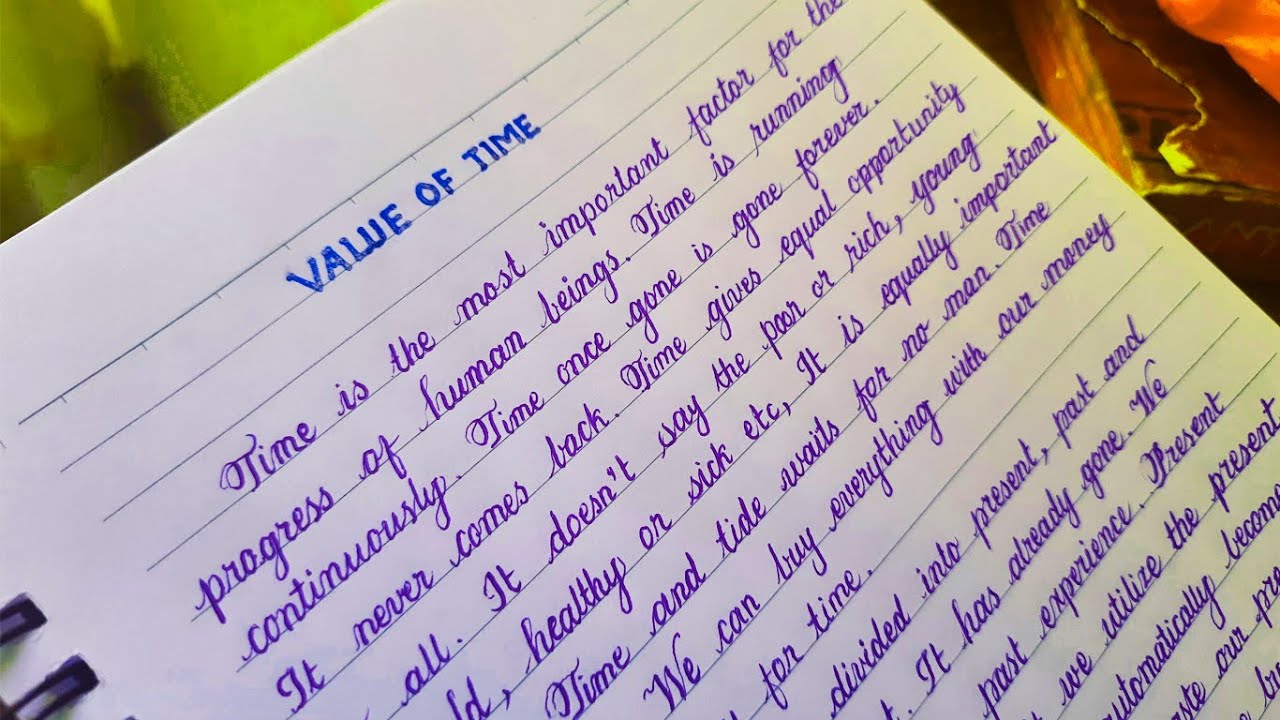 VALUE OF TIME
Time is the most important factor for the
progress of human beings. Time is running
continuously. Time once gone is gone forever.
It never comes back. Time gives equal opportunity
all. It doesn't say the poor or rich, young
ld, healthy or sick etc, It is equally important
Time and tide waits for no man. Time
We can buy everything with our money
for time.
divided into present, past and
It has already gone. We
past experience. Present
we utilize the present
automatically becom
our pre